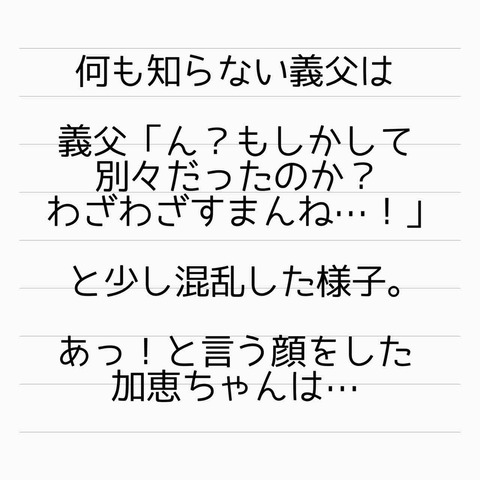 何も知らない義父は
義父「ん？もしかして
別々だったのか？
わざわざすまんね…！」
と少し混乱した様子。
あっ！と言う顔をした
加恵ちゃんは…